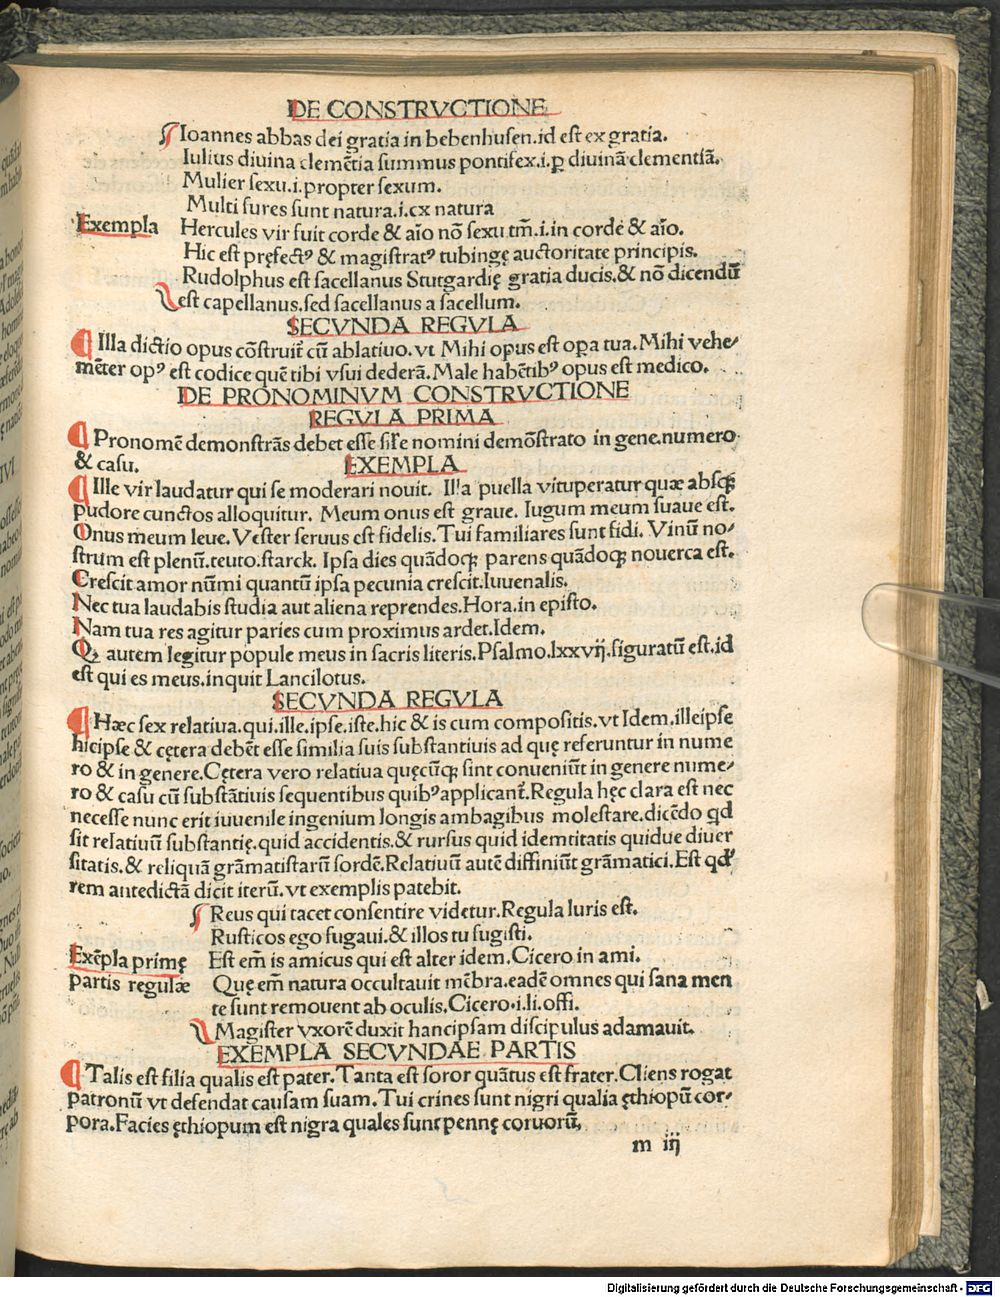 DE CONSTRVCTIONE
Ioannes abbas dei gratia in bebenhusen.id est ex gratia.
Iulius diuina clemẽtia summus pontifex.i.ꝑ diuinã clementiã.
Mulier sexu.i.propter sexum.
Multi fures sunt natura.i.ex natura
Exempla Hercules vir fuit corde & aĩo nõ sexu tm̃.i.in corde & aĩo.
Hic est pręfectꝰ & magistratꝰ tubingę auctoritate principis.
Rudolphus est sacellanus Stutgardię gratia ducis.& nõ dicendũ
est capellanus.sed sacellanus a sacellum.
SECVNDA REGVLA
Illa dictio opus cõstruit̃ cũ ablatiuo.vt Mihi opus est oꝑa tua.Mihi vehe⸗
mẽter opꝰ est codice quẽ tibi vsui dederã.Male habẽtibꝰ opus est medico.
DE PRONOMINVM CONSTRVCTIONE
REGVLA PRIMA
Pronomẽ demonstrãs debet esse sil̃e nomini demõstrato in gene.numero
& casu. EXEMPLA
Ille vir laudatur qui se moderari nouit. Illa puella vituperatur quæ absqꝫ
pudore cunctos alloquitur. Meum onus est graue. Iugum meum suaue est.
Onus meum leue.Vester seruus est fidelis.Tui familiares sunt fidi. Vinũ no⸗
strum est plenũ.teuto.starck. Ipsa dies quãdoqꝫ parens quãdoqꝫ nouerca est.
Crescit amor nũmi quantũ ipsa pecunia crescit.Iuuenalis.
Nec tua laudabis studia aut aliena reprendes.Hora.in episto.
Nam tua res agitur paries cum proximus ardet.Idem.
Qꝫ autem legitur popule meus in sacris literis.Psalmo.lxxvij.figuratũ est.id
est qui es meus.inquit Lancilotus.
SECVNDA REGVLA
Hæc sex relatiua.qui.ille.ipse.iste.hic & is cum compositis.vt Idem.illeipse
hicipse & cętera debẽt esse similia suis substantiuis ad quę referuntur in nume
ro & in genere.Cętera vero relatiua quęcũqꝫ sint conueniũt in genere nume⸗
ro & casu cũ substãtiuis sequentibus quibꝰ applicant̃.Regula hęc clara est nec
necesse nunc erit iuuenile ingenium longis ambagibus molestare.dicẽdo qd
sit relatiuũ substantię.quid accidentis.& rursus quid idemtitatis quidue diuer
sitatis.& reliquã grãmatistarũ sordẽ.Relatiuũ autẽ diffiniũt grãmatici.Est qd̾
rem antedictã dicit iterũ.vt exemplis patebit.
Reus qui tacet consentire videtur.Regula Iuris est.
Rusticos ego fugaui.& illos tu fugisti.
Exẽpla primę Est em̃ is amicus qui est alter idem.Cicero in ami.
partis regulæ Quę em̃ natura occultauit mẽbra.eadẽ omnes qui sana men
te sunt remouent ab oculis.Cicero.i.li.offi.
Magister vxorẽ duxit hancipsam discipulus adamauit.
EXEMPLA SECVNDAE PARTIS
Talis est filia qualis est pater.Tanta est soror quãtus est frater.Cliens rogat
patronũ vt defendat causam suam.Tui crines sunt nigri qualia ęthiopũ cor⸗
pora.Facies ęthiopum est nigra quales sunt pennę coruorũ,
m iij
Digitalisierung gefördert durch die Deutsche Forschungsgemeinschaft - DFG